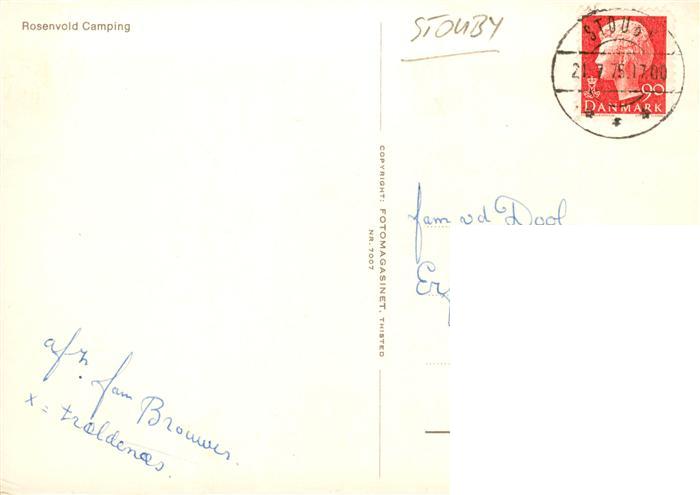 Rosenvold Camping
STOUBY
STOUBY
21.7.75.17.00
90
DANMARK
COPYRIGHT: FOTOMAGASINET, THISTED
NR. 7007
fam vd Dool
afz. fam Brouwer.
x = trældenæs.